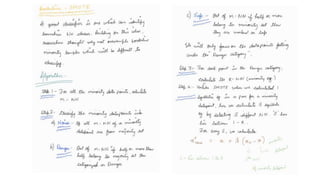 Borderline - SMOTE
A good classifier is one which can identify
borderline
well. Building on this idea,
researchers thought why not
samples which will be difficult to
classify.
Algorithm -
Step 1 - For all the minority data points, calculate
m - NN
Step 2 - Classify the minority datapoints into
a) Noise - If all m - NN of a minority
datapoint are from majority set
b) Danger - Out of m - NN if half or more than
half belong to majority set then
categorized as Danger
c) Safe - Out of m - NN if half or more
belong to minority set then
they are marked as safe
We will only focus on the data points falling
under the Danger category.
Step 3 - For each point in the Danger category,
calculate its K-NN (minority eg)
Step 4 - Unlike SMOTE when we calculated 1
synthetic eg in a pair for a minority
datapoint, here we calculate S synthetic
eg by selecting S different NN. S lies
between 1 - K.
For every S, we calculate